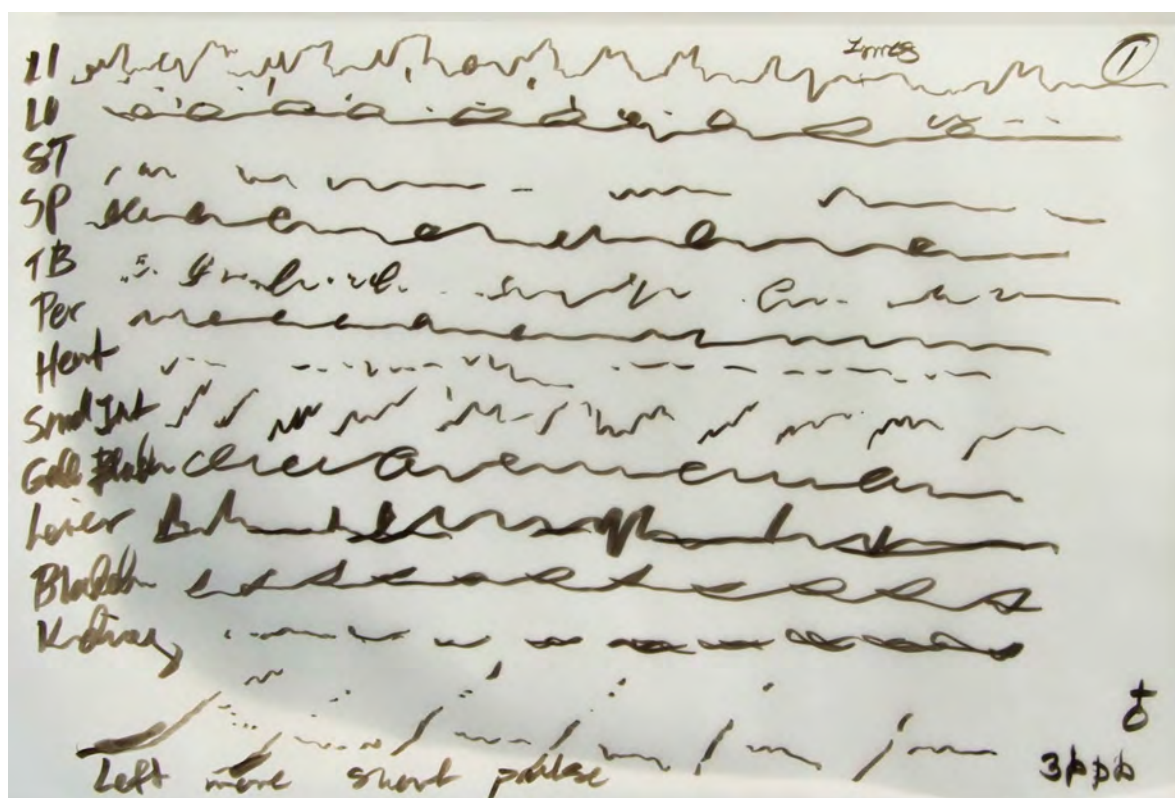 LI ①
LU
ST
SP
TB
Per
Heart
Small Int
Gall Bladdr
Liver
Bladdr
Kidney
Left more short pulse
3ppp